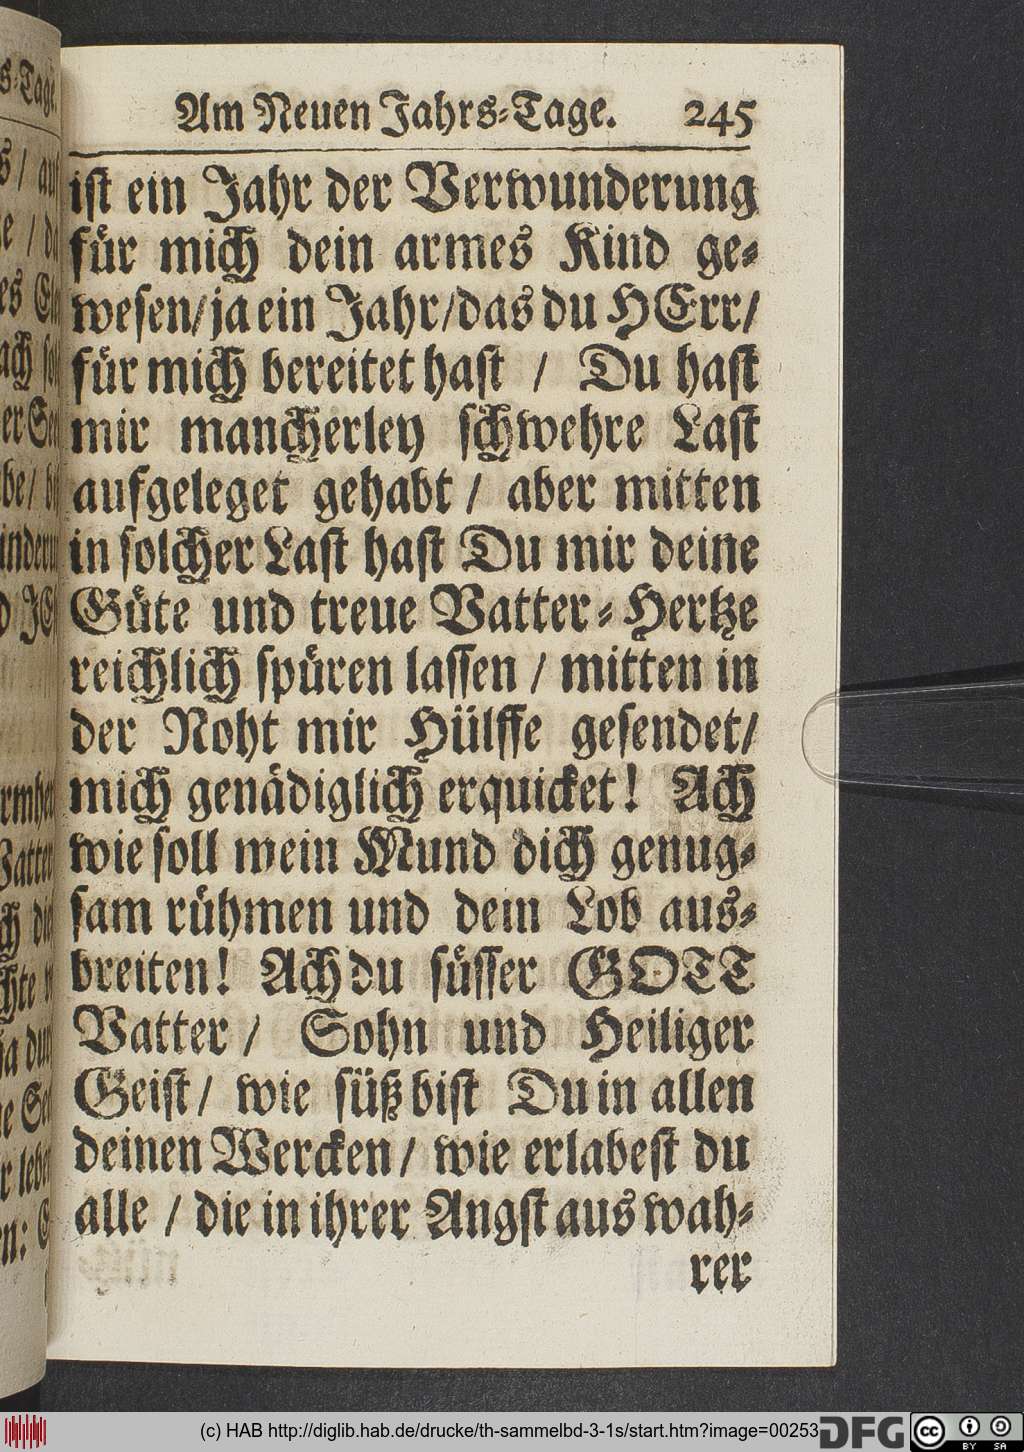 Am Neuen Jahrs-Tage. 245
ist ein Jahr der Verwunderung
für mich dein armes Kind ge-
wesen/ ja ein Jahr/ das du HErr/
für mich bereitet hast / Du hast
mir mancherley schwehre Last
aufgeleget gehabt / aber mitten
in solcher Last hast Du mir deine
Güte und treue Vatter-Hertze
reichlich spüren lassen / mitten in
der Noht mir Hülffe gesendet/
mich genädiglich erquicket! Ach
wie soll mein Mund dich genug-
sam rühmen und dein Lob aus-
breiten! Ach du süsser GOTT
Vatter / Sohn und Heiliger
Geist / wie süß bist Du in allen
deinen Wercken / wie erlabest du
alle / die in ihrer Angst aus wah-
rer
(c) HAB http://diglib.hab.de/drucke/th-sammelbd-3-1s/start.htm?image=00253
DFG
cc
BY SA